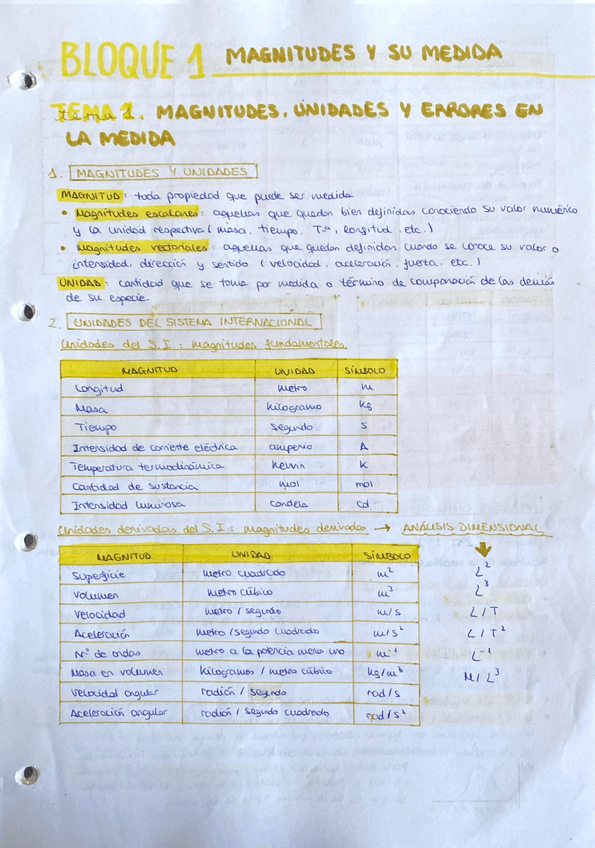 BLOQUE 1 MAGNITUDES Y SU MEDIDA
TEMA 1. MAGNITUDES, UNIDADES Y ERRORES EN
LA MEDIDA
1. MAGNITUDES Y UNIDADES
MAGNITUD: toda propiedad que puede ser medida
• Magnitudes escalares: aquellas que quedan bien definidas conociendo su valor numérico
y la unidad respectiva (masa, tiempo, Tª, longitud, etc.)
• Magnitudes vectoriales: aquellas que quedan definidas cuando se conoce su valor o
intensidad, dirección y sentido (velocidad, aceleración, fuerza, etc.)
UNIDAD: cantidad que se toma por medida o término de comparación de las demás
de su especie
2. UNIDADES DEL SISTEMA INTERNACIONAL
Unidades del S.I.: magnitudes fundamentales
MAGNITUD UNIDAD SÍMBOLO
Longitud metro m
Masa kilogramo kg
Tiempo segundo s
Intensidad de corriente eléctrica amperio A
Temperatura termodinámica Kelvin K
Cantidad de sustancia mol mol
Intensidad luminosa candela cd
Unidades derivadas del S.I.: magnitudes derivadas → ANÁLISIS DIMENSIONAL
MAGNITUD UNIDAD SÍMBOLO
Superficie metro cuadrado m² L²
Volumen metro cúbico m³ L³
Velocidad metro / segundo m/s L/T
Aceleración metro / segundo cuadrado m/s² L/T²
Nº de ondas metro a la potencia menos uno m⁻¹ L⁻¹
Masa en volumen kilogramos / metro cúbico kg/m³ M/L³
Velocidad angular radián / segundo rad/s
Aceleración angular radián / segundo cuadrado rad/s²